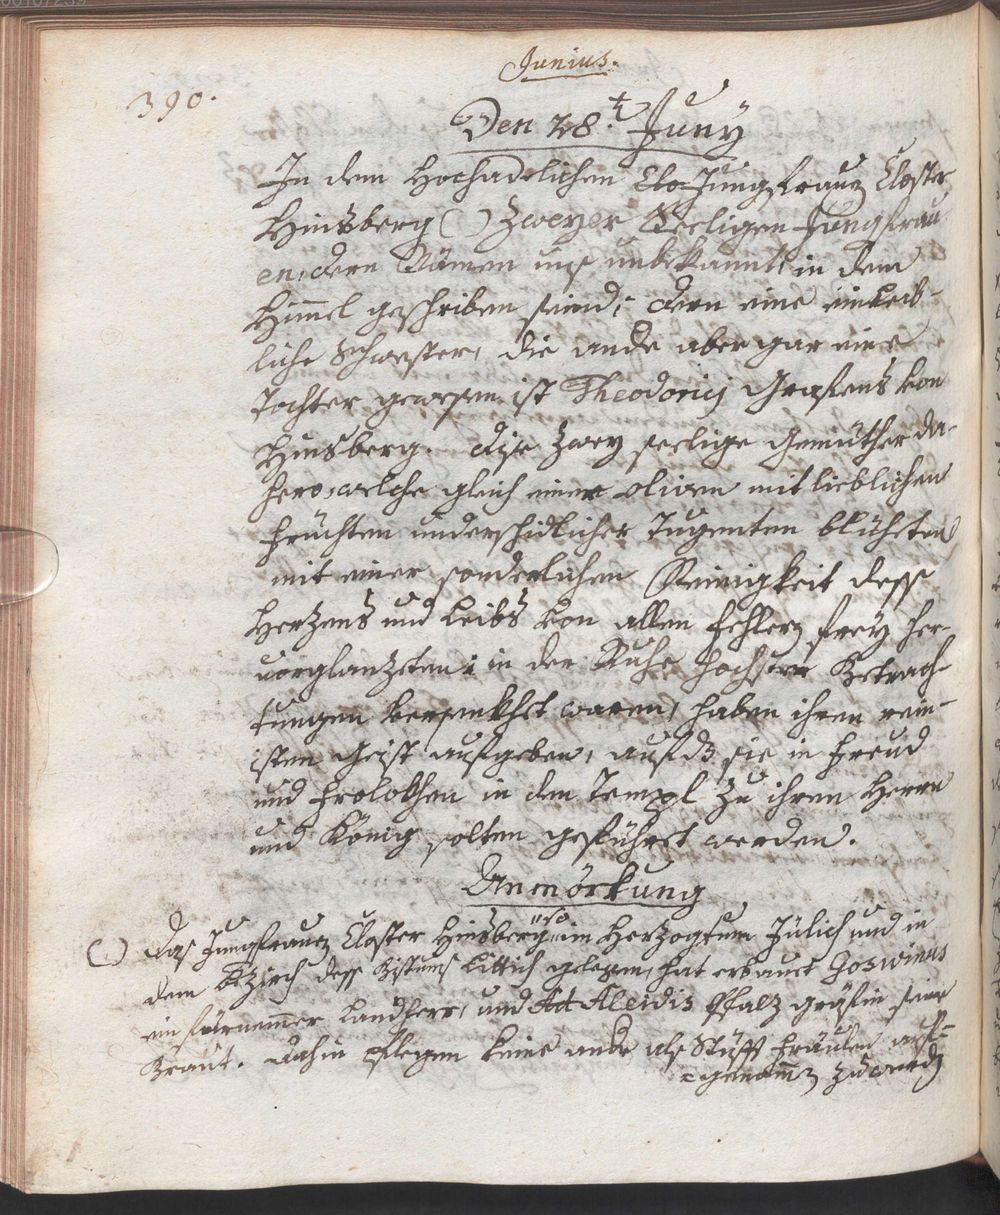 Junius.
390.
Den 28.t Juny
In dem Hochadelichen Jungfrauen Closter
Hinsberg ( ) zweyer Seeligen Jungfrau
en, dern Nämen uns unbekannt, in dem
Himmel geschriben seind; dern eine einleib-
liche Schwester, die ande aber gar eine
Tochter gewesen ist Theodorici Grafens von
Hinsberg. dise zwey seelige Gemüther da-
hero, welche gleich einer oliven mit lieblichen
früchten underschidlicher Tugenten blüheten
mit einer sonderlichen Reinigkeit dess
Herzens und Leibs von allen fehlern frey her-
vorglanzeten: in der Ruhe hochster Betrach-
tungen versenkhet waren, haben ihren rein-
isten Geist aufgeben, auf dz sie in freud
und frolokhen in den Templ zu ihren Herrn
und König solten geführet werden.
Anmörkung
( ) das Jungfrauen Closter Hinsberg so im Herzogtum Jülich und in
dem Bezirch dess Bistums Littich gelegen, hat erbauet Goswinus
ein fürnemmer Landherr, und Aleidis Pfalz gräfin seine
Braut. dahin pflegen keine ande als Stüfft fräulen auf-
genommen zu werden